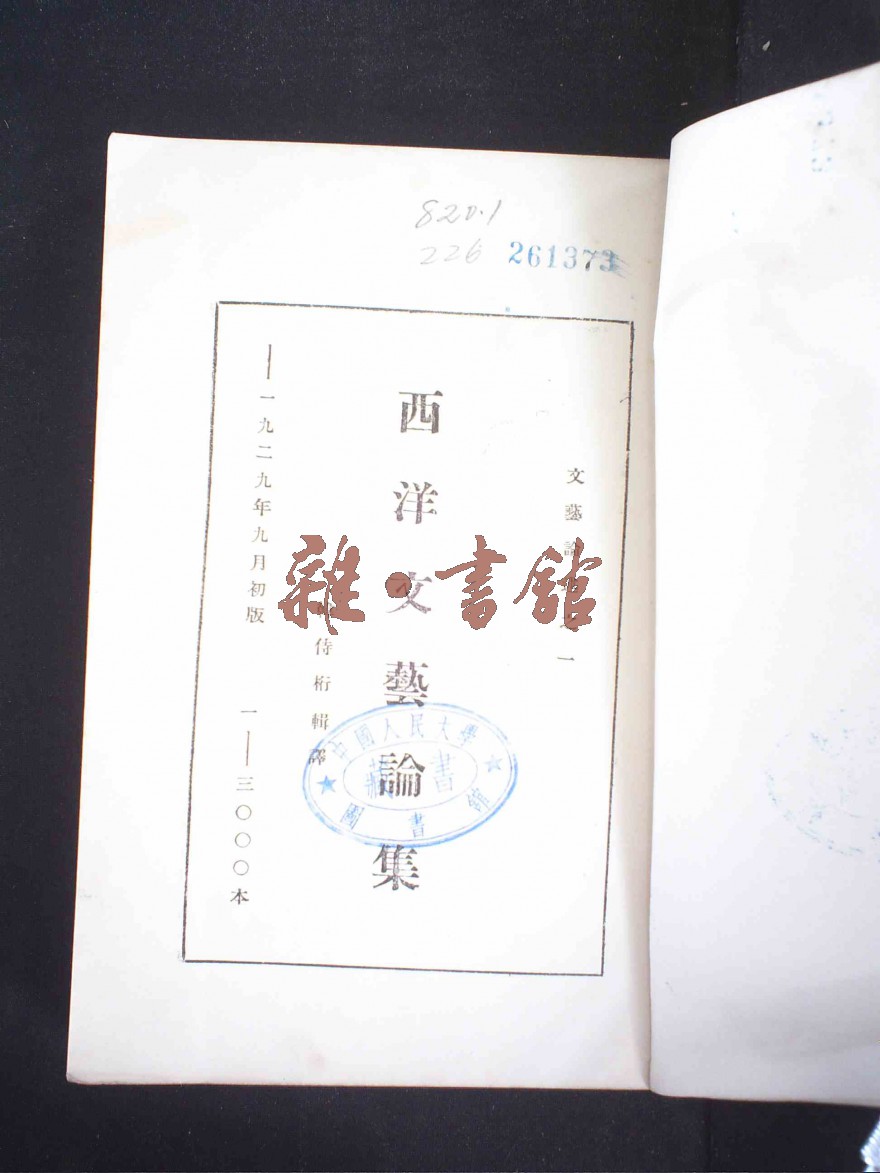 820.1
226 261373
文藝論
一
西洋文藝論集
侍桁輯譯
一九二九年九月初版 一——三〇〇〇本
雜·書館
中國人民大學
藏書
圖書館